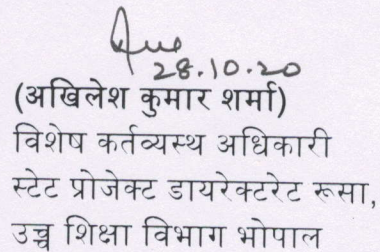 28.10.20
(अखिलेश कुमार शर्मा)
विशेष कर्तव्यस्थ अधिकारी
स्टेट प्रोजेक्ट डायरेक्टरेट रूसा,
उच्च शिक्षा विभाग भोपाल